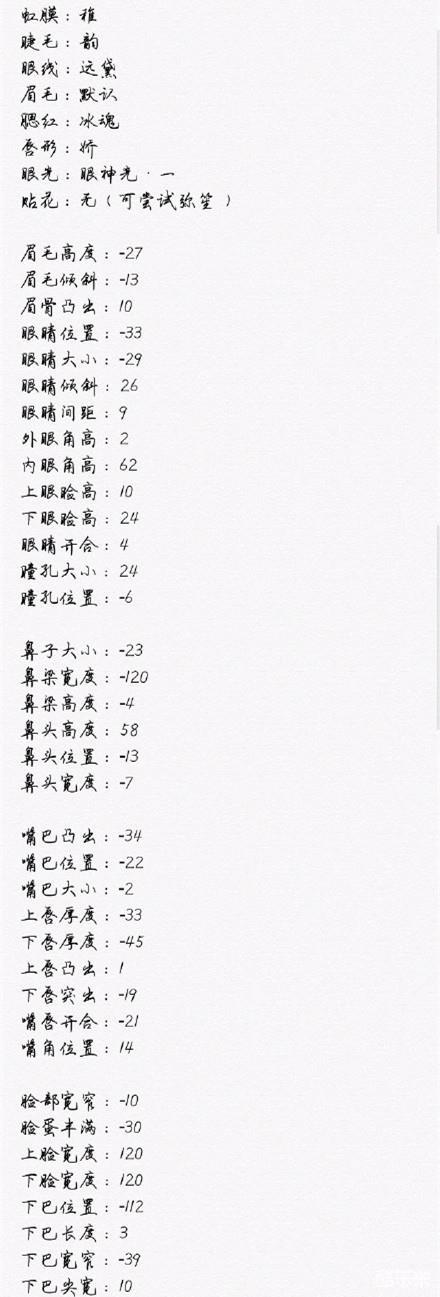 虹膜：稚
睫毛：韵
眼线：远黛
眉毛：默认
腮红：冰魂
唇形：娇
眼光：眼神光·一
贴花：无（可尝试弥笙）
眉毛高度：-27
眉毛倾斜：-13
眉骨凸出：10
眼睛位置：-33
眼睛大小：-29
眼睛倾斜：26
眼睛间距：9
外眼角高：2
内眼角高：62
上眼睑高：10
下眼睑高：24
眼睛开合：4
瞳孔大小：24
瞳孔位置：-6
鼻子大小：-23
鼻梁宽度：-120
鼻梁高度：-4
鼻头高度：58
鼻头位置：-13
鼻头宽度：-7
嘴巴凸出：-34
嘴巴位置：-22
嘴巴大小：-2
上唇厚度：-33
下唇厚度：-45
上唇凸出：1
下唇突出：-19
嘴唇开合：-21
嘴角位置：14
脸部宽窄：-10
脸蛋丰满：-30
上脸宽度：120
下脸宽度：120
下巴位置：-112
下巴长度：3
下巴宽窄：-39
下巴尖宽：10